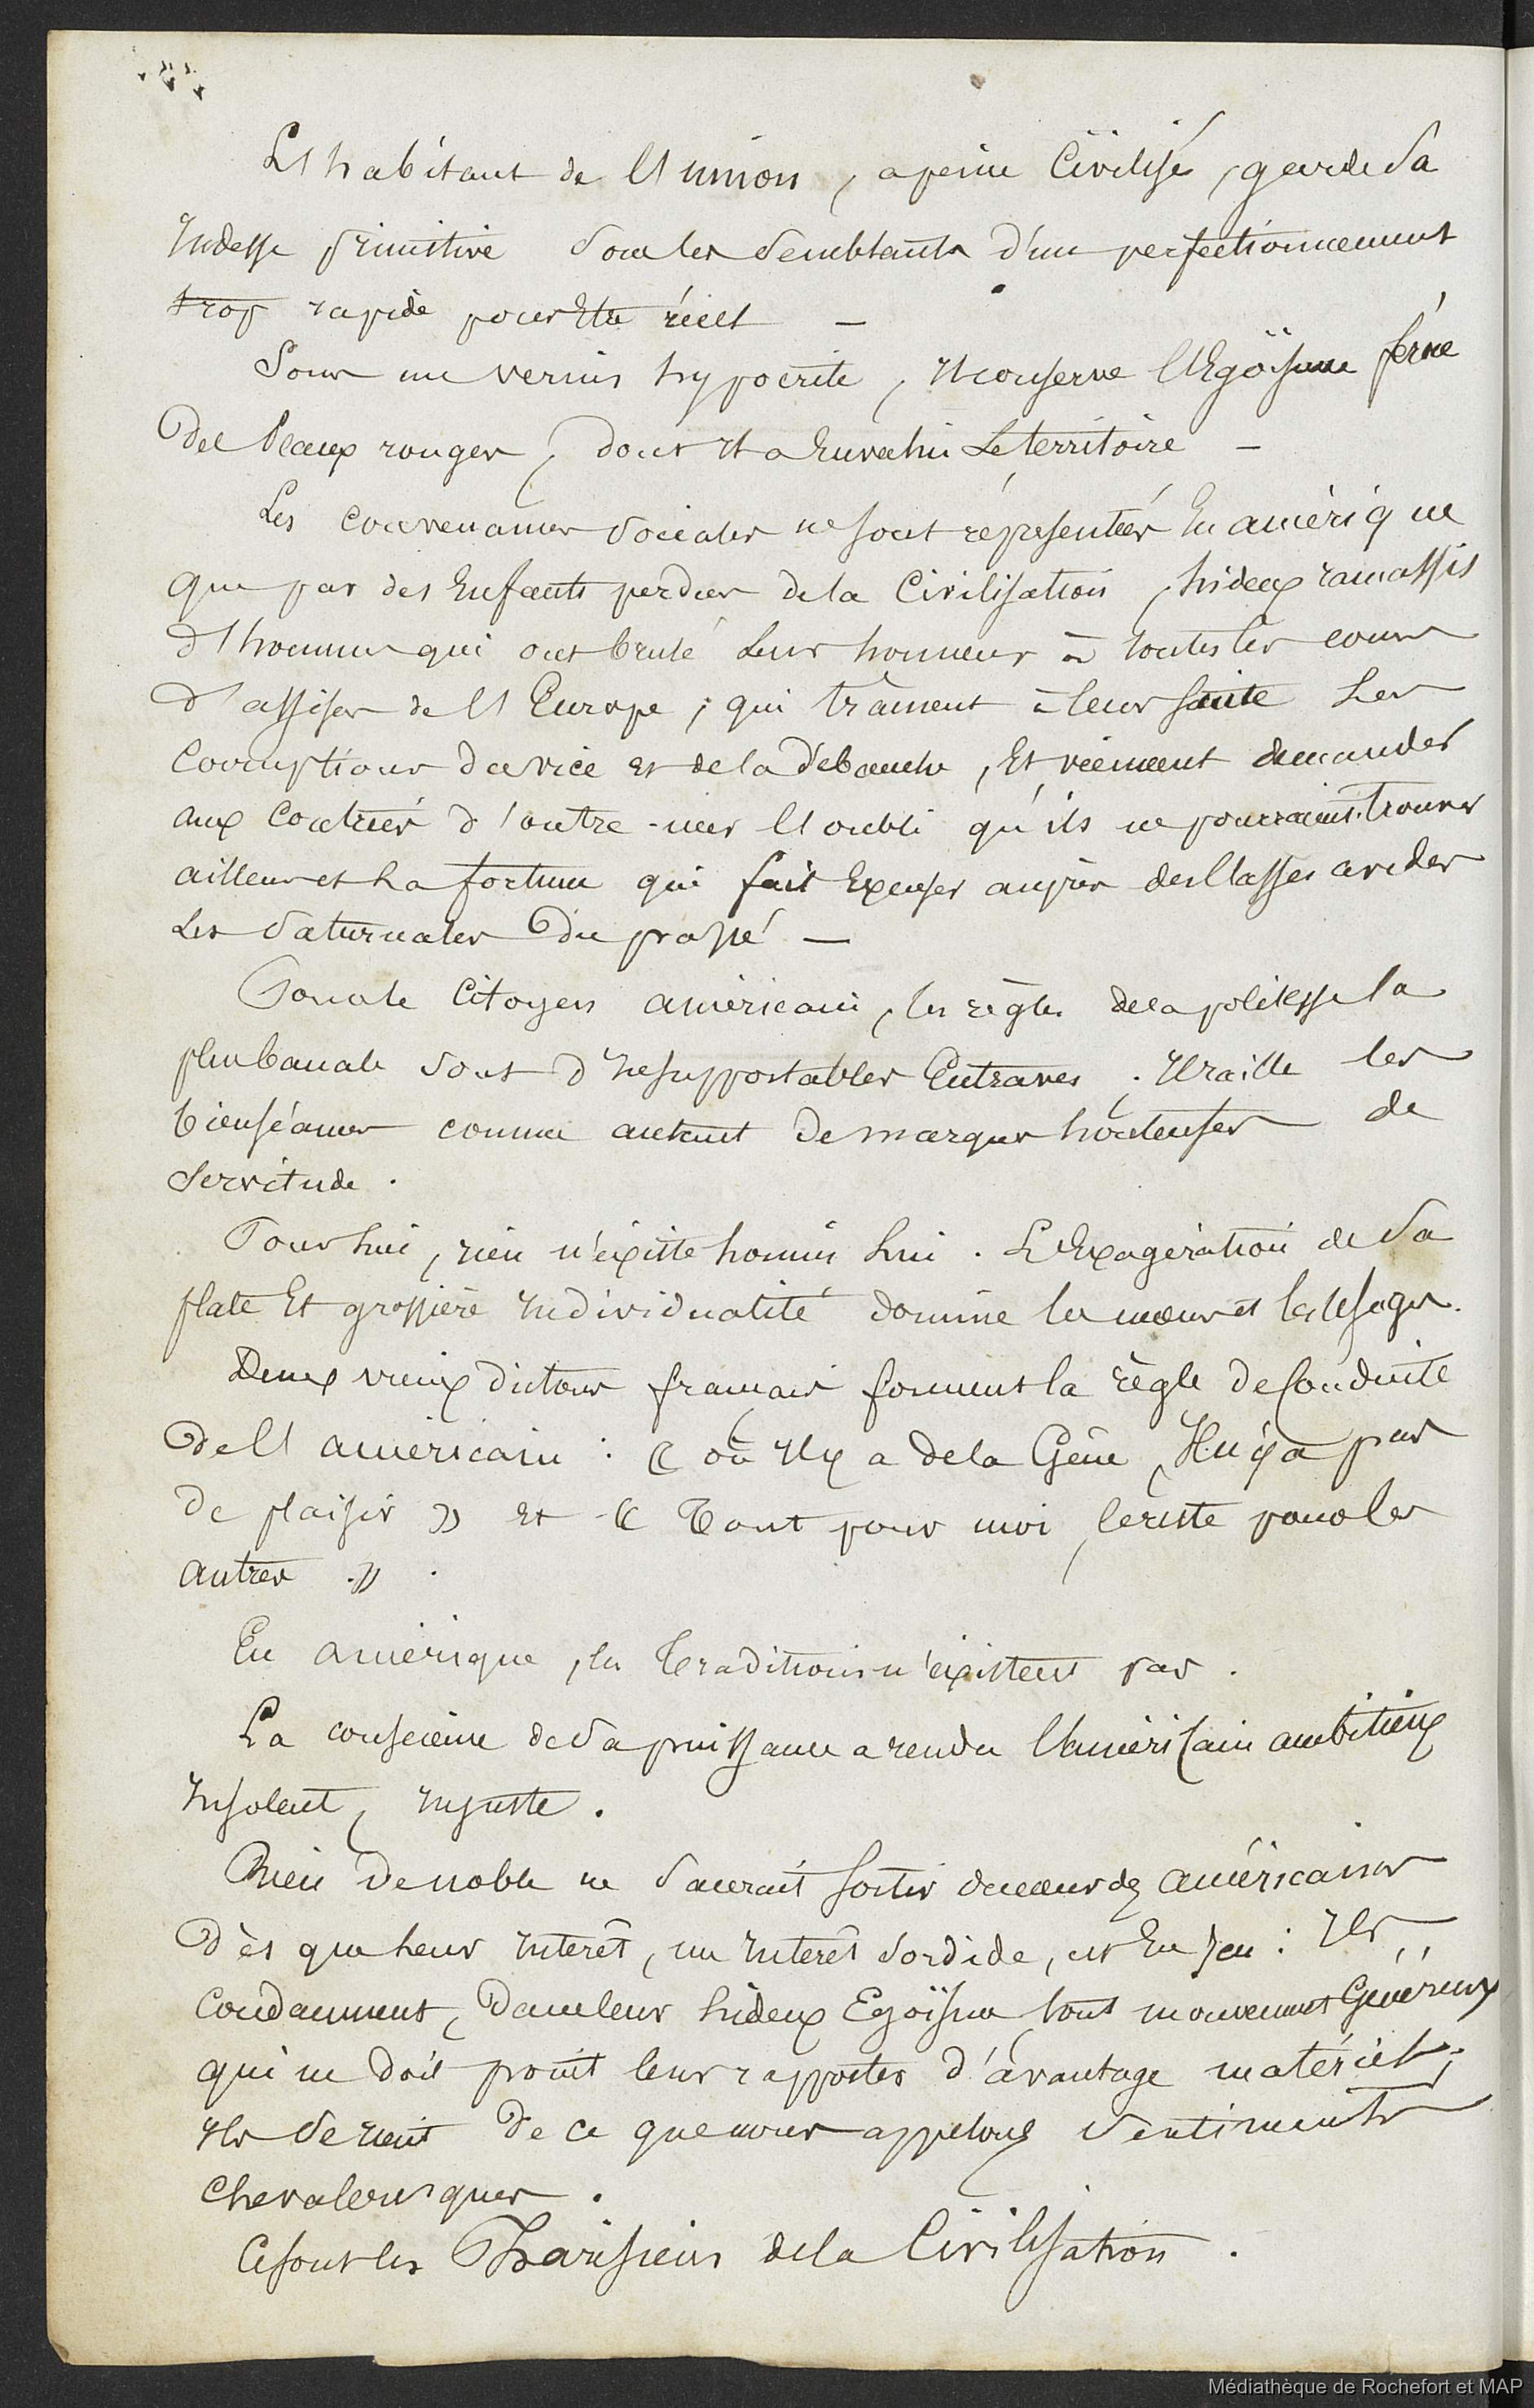 L'habitant de l'union, a peine Civilisé, garde sa
rudesse primitive sous les semblants d'un perfectionnement
trop rapide pour Etre réel —
Sous un vernis hypocrite, Il conserve l'Egoïsme féroce
des Peaux rouges, dont Il a Envahi Le territoire —
Les convenances sociales ne sont représentées En amérique
que par des Enfants perdus de la Civilisation, hideux ramassis
d'hommes qui ont brulé Leur honneur à toutes les cours
d'assises de l'Europe; qui trainent à leur suite Les
Corruptions du vice et de la Débauche, Et viennent demander
aux Contrées d'outre-mer l'oubli qu'ils ne pourraient trouver
ailleurs et La fortune qui fait Excuser auprès des Classes avides
Les Saturnales Du passé —
Pour le Citoyen américain, les règles de la politesse la
plus banale sont d'Insupportables Entraves. Il raille les
bienséances comme autant De marques honteuses de
Servitude.
Pour Lui, rien n'existe hormis Lui. L'Exagération de sa
plate Et grossière Individualité domine les moeurs et les Usages.
Deux vieux dictons français forment la règle De Conduite
De l'américain : « où Il y a de la Gêne, Il n'y a pas
De plaisir » et « Tout pour moi, le reste pour les
autres ».
En amérique, les Traditions n'existent pas.
La conscience de sa puissance a rendu l'américain ambitieux
Insolent, Injuste.
Rien De noble ne saurait sortir du coeur des américains
Dès que Leur Interêt, un Interêt sordide, est En Jeu : Ils
Condamnent, Dans leur hideux Egoïsme, tout mouvement Généreux
qui ne doit point leur rapporter d'avantage matériel;
Ils se rient De ce que nous appelons sentiments
Chevaleresques.
Ce sont les Pharisiens de la Civilisation.
Médiathèque de Rochefort et MAP